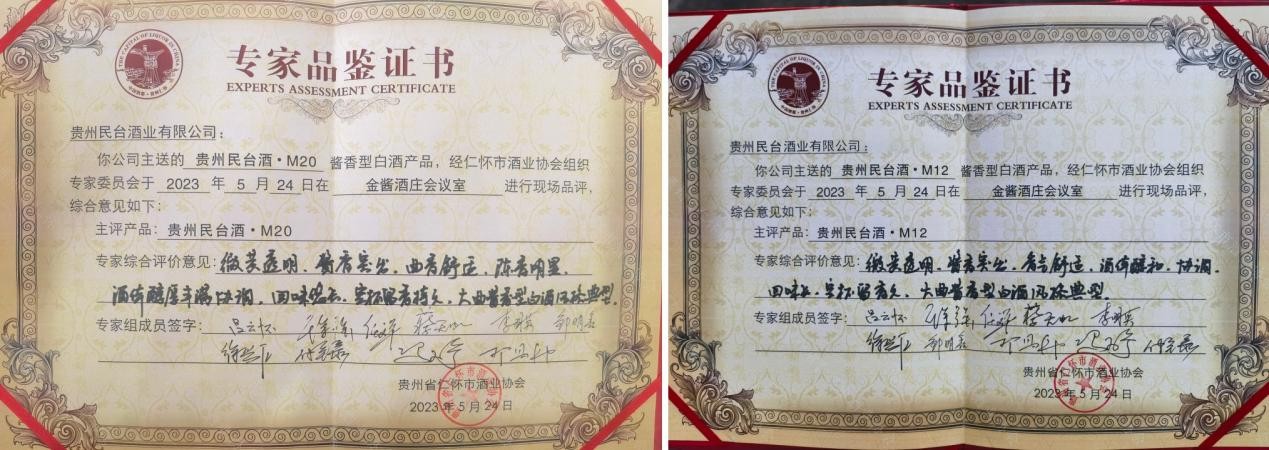 THE CAPITAL OF LIQUOR IN CHINA
专家品鉴证书
EXPERTS ASSESSMENT CERTIFICATE
贵州民台酒业有限公司:
你公司主送的 贵州民台酒·M20 酱香型白酒产品,经仁怀市酒业协会组织
专家委员会于 2023 年 5 月 24 日在 金酱酒庄会议室 进行现场品评,
综合意见如下:
主评产品: 贵州民台酒·M20
专家综合评价意见: 微黄透明、酱香突出、曲香舒适、陈香明显、
酒体醇厚丰满协调、回味悠长、空杯留香持久、大曲酱香型白酒风格典型。
专家组成员签字:
贵州省仁怀市酒业协会
2023 年 5 月 24 日
THE CAPITAL OF LIQUOR IN CHINA
专家品鉴证书
EXPERTS ASSESSMENT CERTIFICATE
贵州民台酒业有限公司:
你公司主送的 贵州民台酒·M12 酱香型白酒产品,经仁怀市酒业协会组织
专家委员会于 2023 年 5 月 24 日在 金酱酒庄会议室 进行现场品评,
综合意见如下:
主评产品: 贵州民台酒·M12
专家综合评价意见: 微黄透明、酱香突出、香气舒适、酒体醇和、协调、
回味长、空杯留香久、大曲酱香型白酒风格典型。
专家组成员签字:
贵州省仁怀市酒业协会
2023 年 5 月 24 日